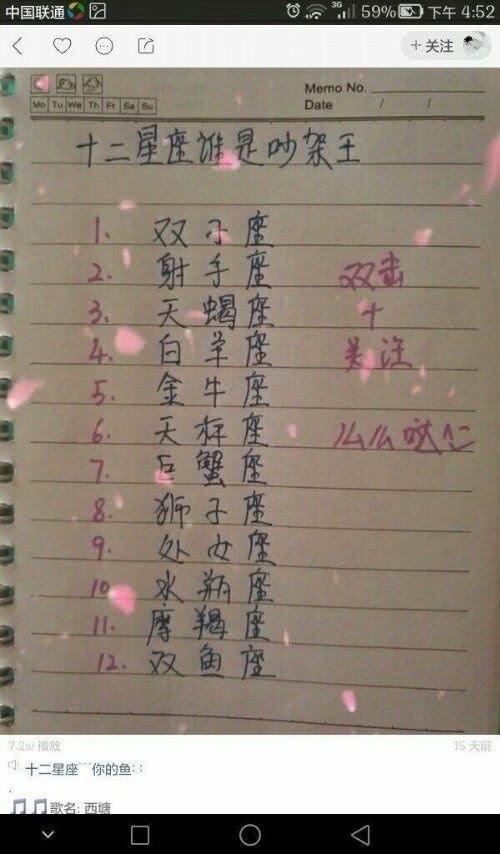 中国联通 3G 59% 下午 4:52
+关注
Memo No.
Mo Tu We Th Fr Sa Su
Date / /
十二星座谁是吵架王
1. 双子座
2. 射手座 双击
3. 天蝎座 +
4. 白羊座 关注
5. 金牛座
6. 天秤座 么么哒
7. 巨蟹座
8. 狮子座
9. 处女座
10. 水瓶座
11. 摩羯座
12. 双鱼座
7.2w 播放 15 天前
十二星座 你的鱼::
.
歌名: 西塘